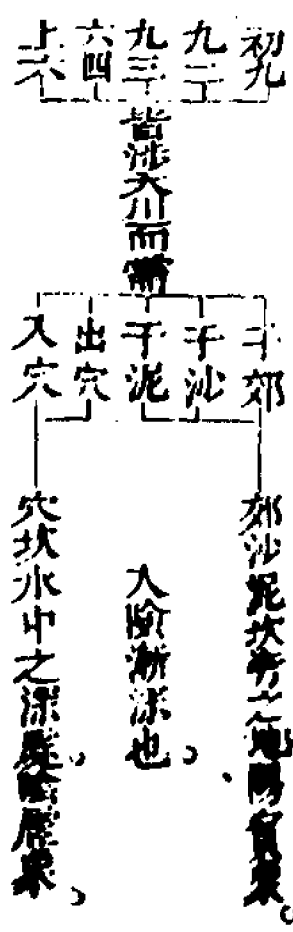 初九
九二
九三
六四
上六
皆涉大川而需
于郊
于沙
于泥
出穴
入穴
郊沙泥坎旁之地陽實象
入險漸深也
穴坎水中之深處陰虛象